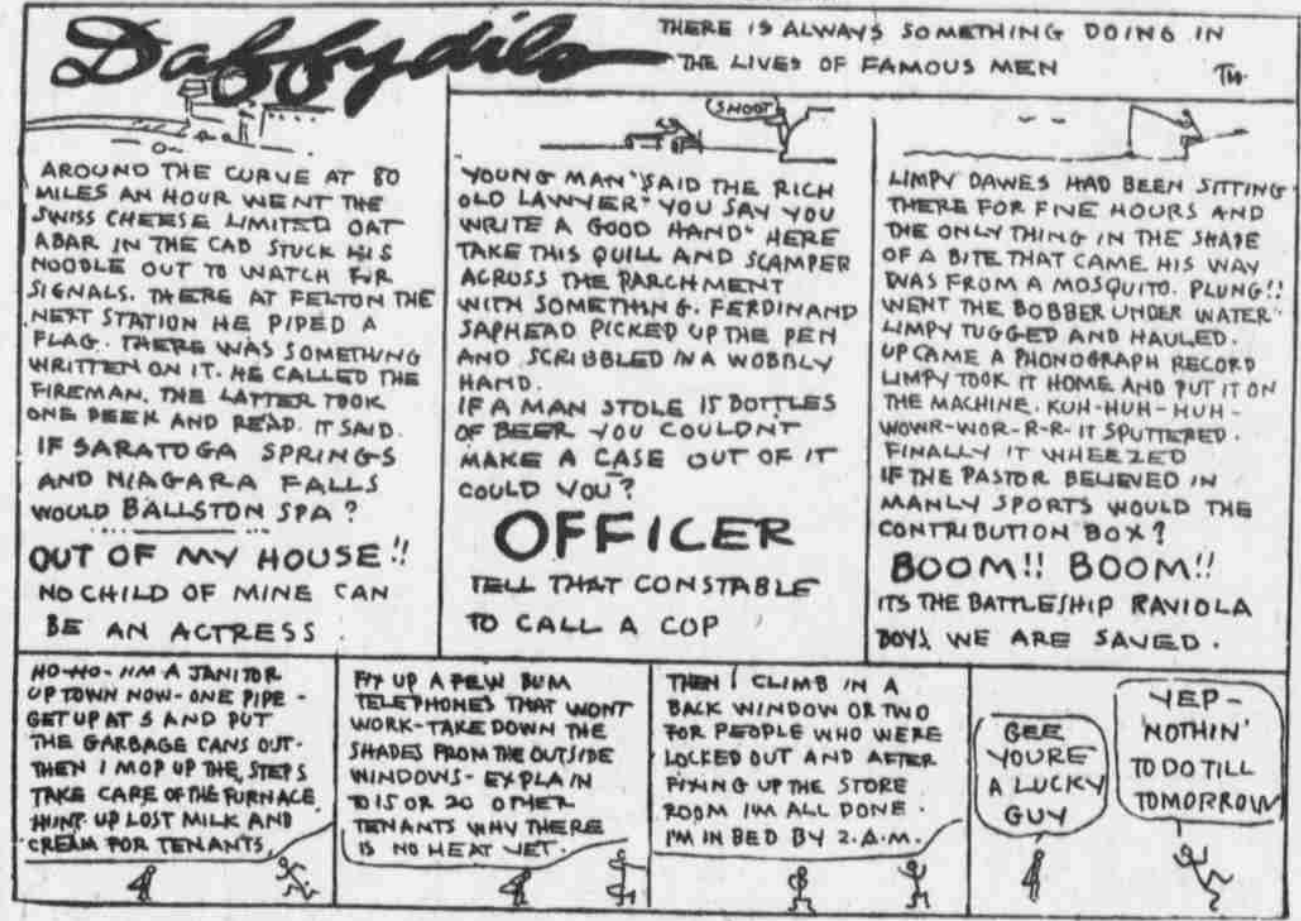 Daffydils
THERE IS ALWAYS SOMETHING DOING IN
THE LIVES OF FAMOUS MEN
TAD
AROUND THE CURVE AT 80
MILES AN HOUR WENT THE
SWISS CHEESE LIMITED OAT
ABAR IN THE CAB STUCK HIS
NOODLE OUT TO WATCH FUR
SIGNALS. THERE AT FELTON THE
NEXT STATION HE PIPED A
FLAG. THERE WAS SOMETHING
WRITTEN ON IT. HE CALLED THE
FIREMAN. THE LATTER TOOK
ONE PEEK AND READ. IT SAID.
IF SARATOGA SPRINGS
AND NIAGARA FALLS
WOULD BALLSTON SPA?
OUT OF MY HOUSE!!
NO CHILD OF MINE CAN
BE AN ACTRESS.
SHOOT
YOUNG MAN" SAID THE RICH
OLD LAWYER" YOU SAY YOU
WRITE A GOOD HAND" HERE
TAKE THIS QUILL AND SCAMPER
ACROSS THE PARCHMENT
WITH SOMETHING. FERDINAND
SAPHEAD PICKED UP THE PEN
AND SCRIBBLED IN A WOBBLY
HAND.
IF A MAN STOLE 15 BOTTLES
OF BEER YOU COULDNT
MAKE A CASE OUT OF IT
COULD YOU?
OFFICER
TELL THAT CONSTABLE
TO CALL A COP
LIMPY DAWES HAD BEEN SITTING
THERE FOR FIVE HOURS AND
THE ONLY THING IN THE SHAPE
OF A BITE THAT CAME HIS WAY
WAS FROM A MOSQUITO. PLUNG!!
WENT THE BOBBER UNDER WATER
LIMPY TUGGED AND HAULED.
UP CAME A PHONOGRAPH RECORD
LIMPY TOOK IT HOME AND PUT IT ON
THE MACHINE. KUH-HUH-HUH-
WOWR-WOR-R-R- IT SPUTTERED.
FINALLY IT WHEEZED
IF THE PASTOR BELIEVED IN
MANLY SPORTS WOULD THE
CONTRIBUTION BOX?
BOOM!! BOOM!!
ITS THE BATTLESHIP RAVIOLA
BOYS WE ARE SAVED.
HO-HO-IM A JANITOR
UP TOWN NOW-ONE PIPE-
GET UP AT 5 AND PUT
THE GARBAGE CANS OUT-
THEN I MOP UP THE STEPS
TAKE CARE OF THE FURNACE
HUNT UP LOST MILK AND
CREAM FOR TENANTS.
FIX UP A FEW BUM
TELEPHONES THAT WONT
WORK-TAKE DOWN THE
SHADES FROM THE OUTSIDE
WINDOWS-EXPLAIN
TO 15 OR 20 OTHER
TENANTS WHY THERE
IS NO HEAT YET.
THEN I CLIMB IN A
BACK WINDOW OR TWO
FOR PEOPLE WHO WERE
LOCKED OUT AND AFTER
FIXING UP THE STORE
ROOM IM ALL DONE.
I'M IN BED BY 2.A.M.
GEE
YOURE
A LUCKY
GUY
YEP-
NOTHIN'
TO DO TILL
TOMORROW